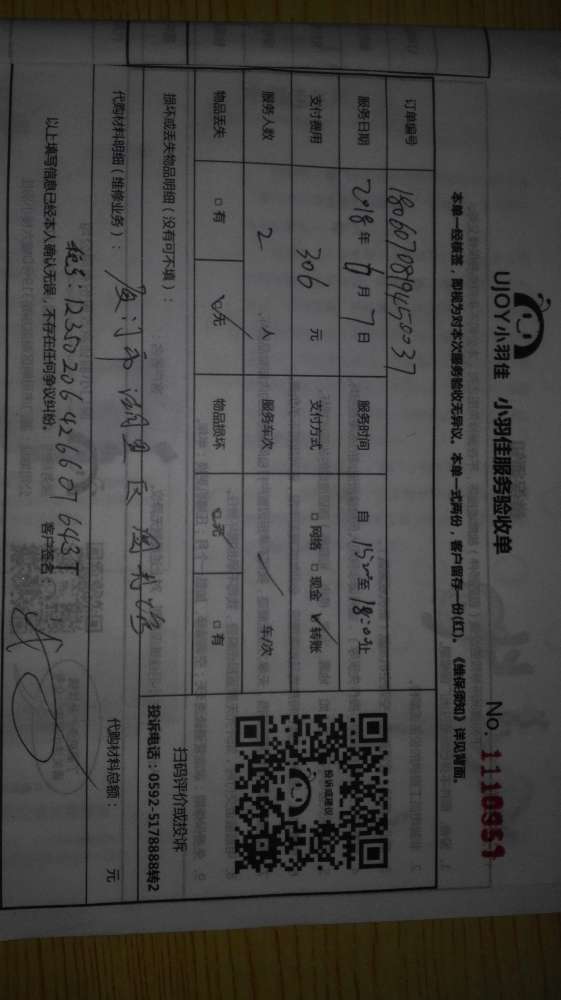 UJOY小羽佳 小羽佳服务验收单
No. 1110959
本单一经核签,即视为对本次服务验收无异议。本单一式两份,客户留存一份(红),《维保须知》详见背面。
订单编号 180607089450037
服务日期 2018年6月7日 服务时间 自15:00至18:00止
支付费用 306元 支付方式 □网络 □现金 ☑转账
服务人数 2人 服务车次 / 车/次
物品丢失 □有 ☑无 物品损坏 ☑无 □有
投诉或建议
扫码评价或投诉
投诉电话:0592-5178888转2
损坏或丢失物品明细(没有可不填):
代购材料明细(维修业务): 厦门市湖里区图书馆
代购材料总额: 元
税号:12350206426607643T
以上填写信息已经本人确认无误,不存在任何争议纠纷。 客户签名: